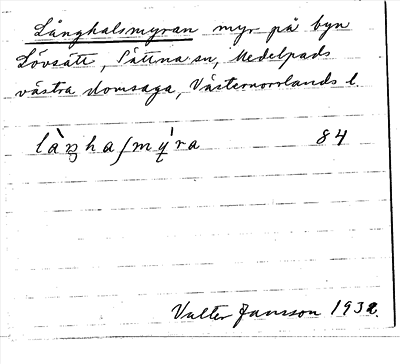 Långhalsmyran myr på byn
Lövsätt, Sättna sn, Medelpads
västra domsaga, Västernorrlands l.
làŋhaʃmý́ra 84
Valter Jansson 1932.